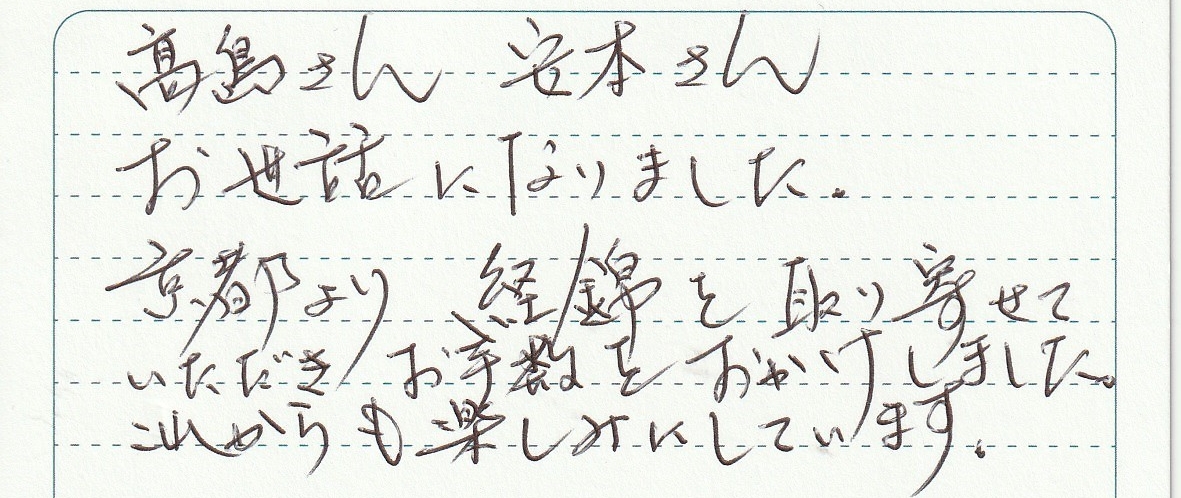 高島さん 安本さん
お世話になりました。
京都より 経錦を取り寄せて
いただきお手数をおかけしました。
これからも楽しみにしています。